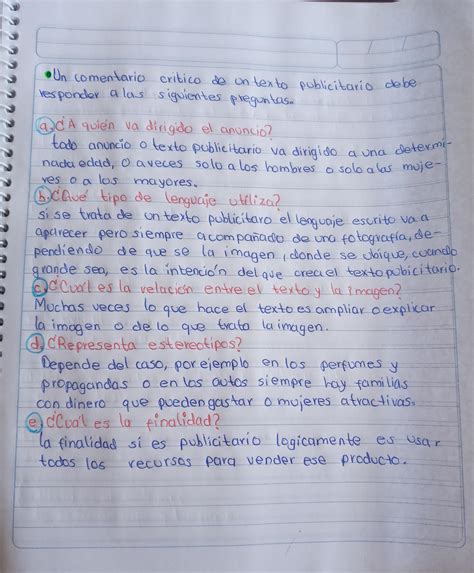 •Un comentario critico de un texto publicitario debe
responder a las siguientes preguntas.
a. ¿A quién va dirigido el anuncio?
todo anuncio o texto publicitario va dirigido a una determi-
nada edad, o a veces solo a los hombres o solo a las muje-
res o a los mayores.
b. ¿Qué tipo de lenguaje utiliza?
si se trata de un texto publicitaro el lenguaje escrito va a
aparecer pero siempre acompañado de una fotografía, de-
pendiendo de que se la imagen, donde se ubique, cuando
grande sea, es la intención del que crea el texto pubicitario.
c. ¿Cual es la relación entre el texto y la imagen?
Muchas veces lo que hace el texto es ampliar o explicar
la imagen o de lo que trata la imagen.
d. ¿Representa estereotipos?
Depende del caso, por ejemplo en los perfumes y
propagandas o en los autos siempre hay familias
con dinero que pueden gastar o mujeres atractivas.
e. ¿Cual es la finalidad?
la finalidad si es publicitario logicamente es usar
todos los recursos para vender ese producto.